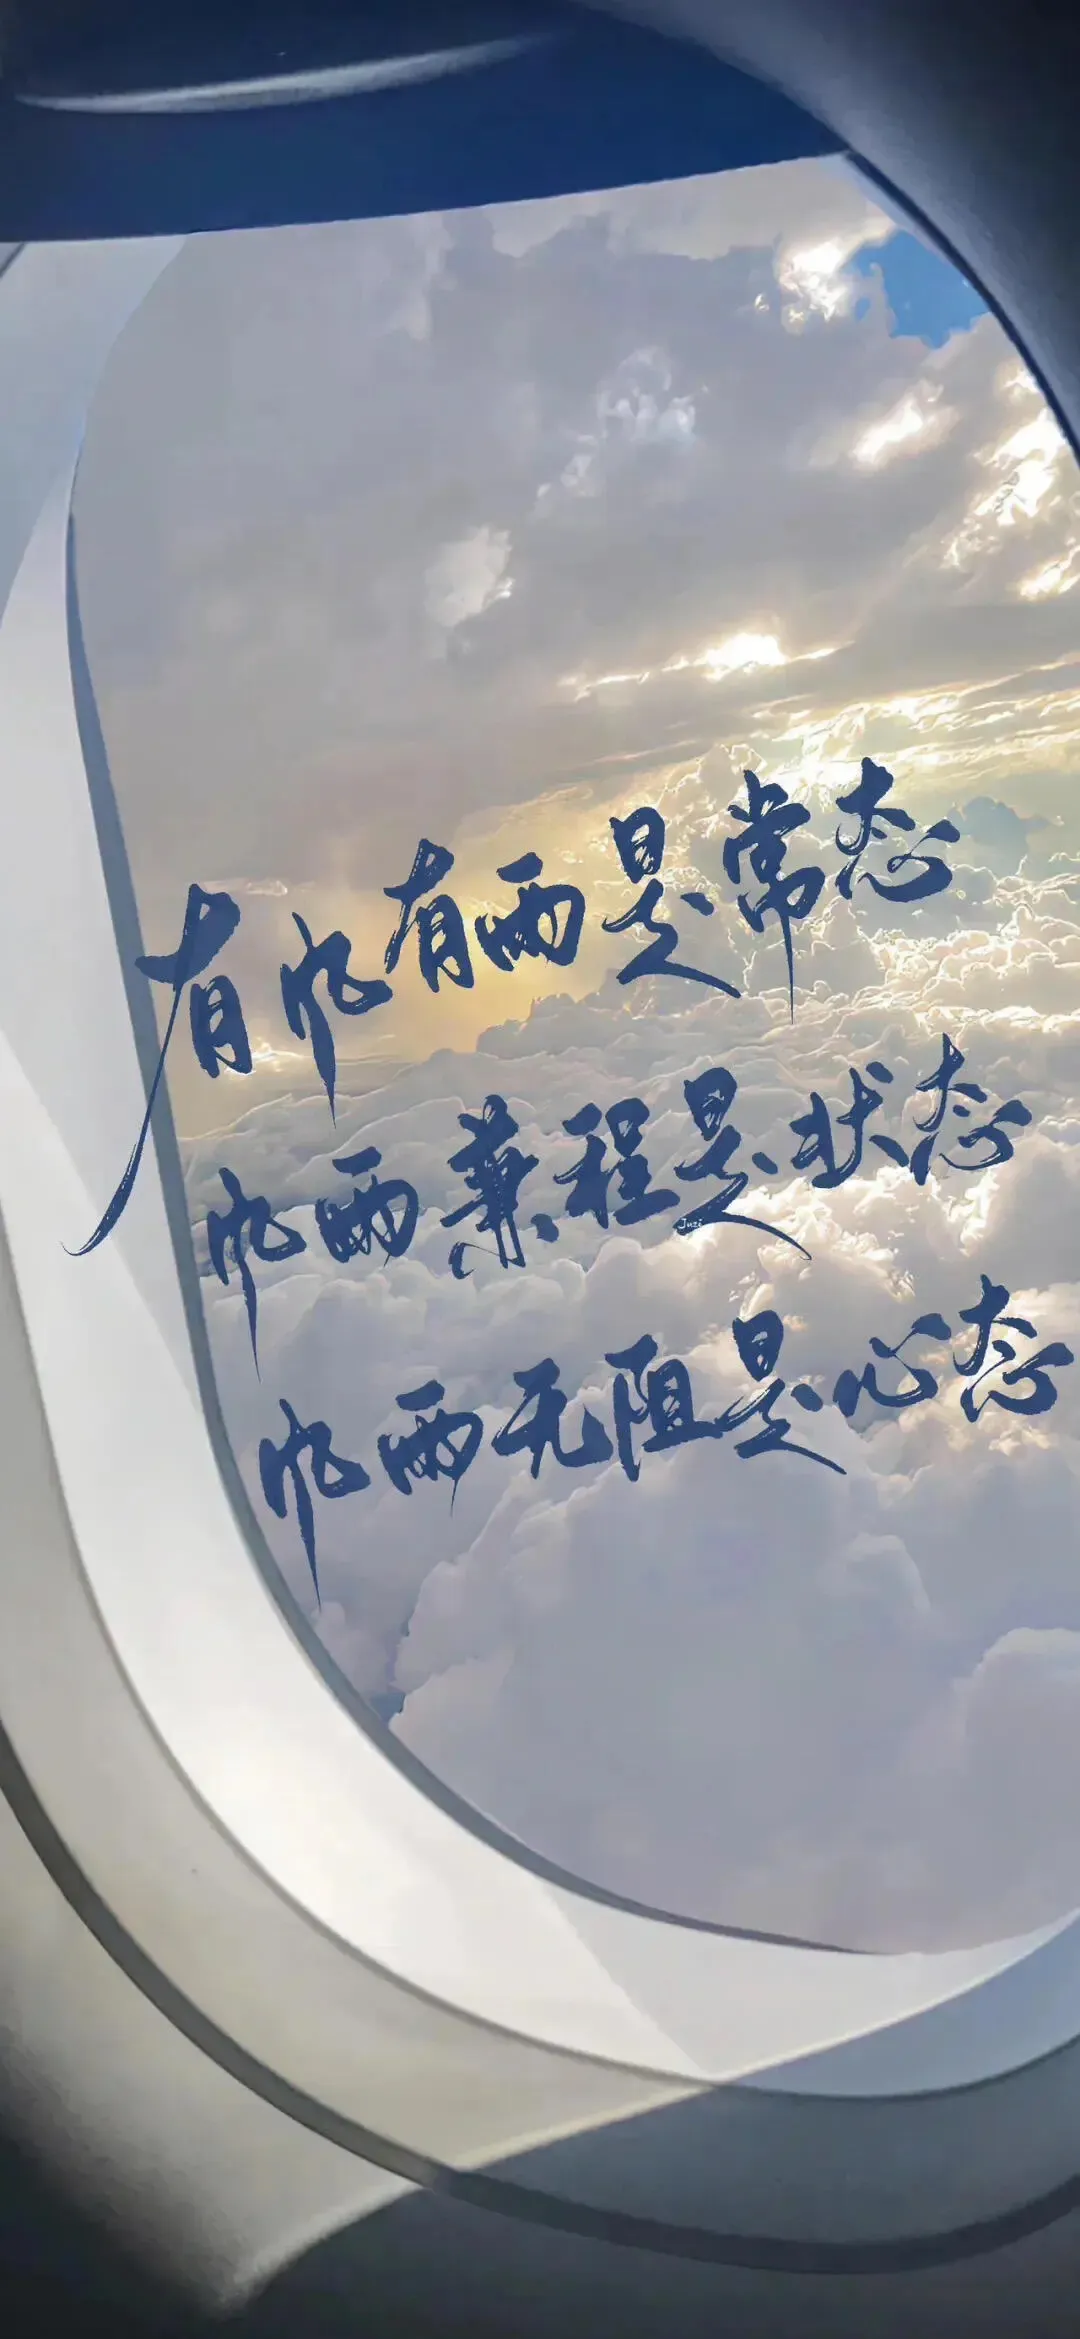 有风有雨是常态
风雨兼程是状态
Juzi
风雨无阻是心态